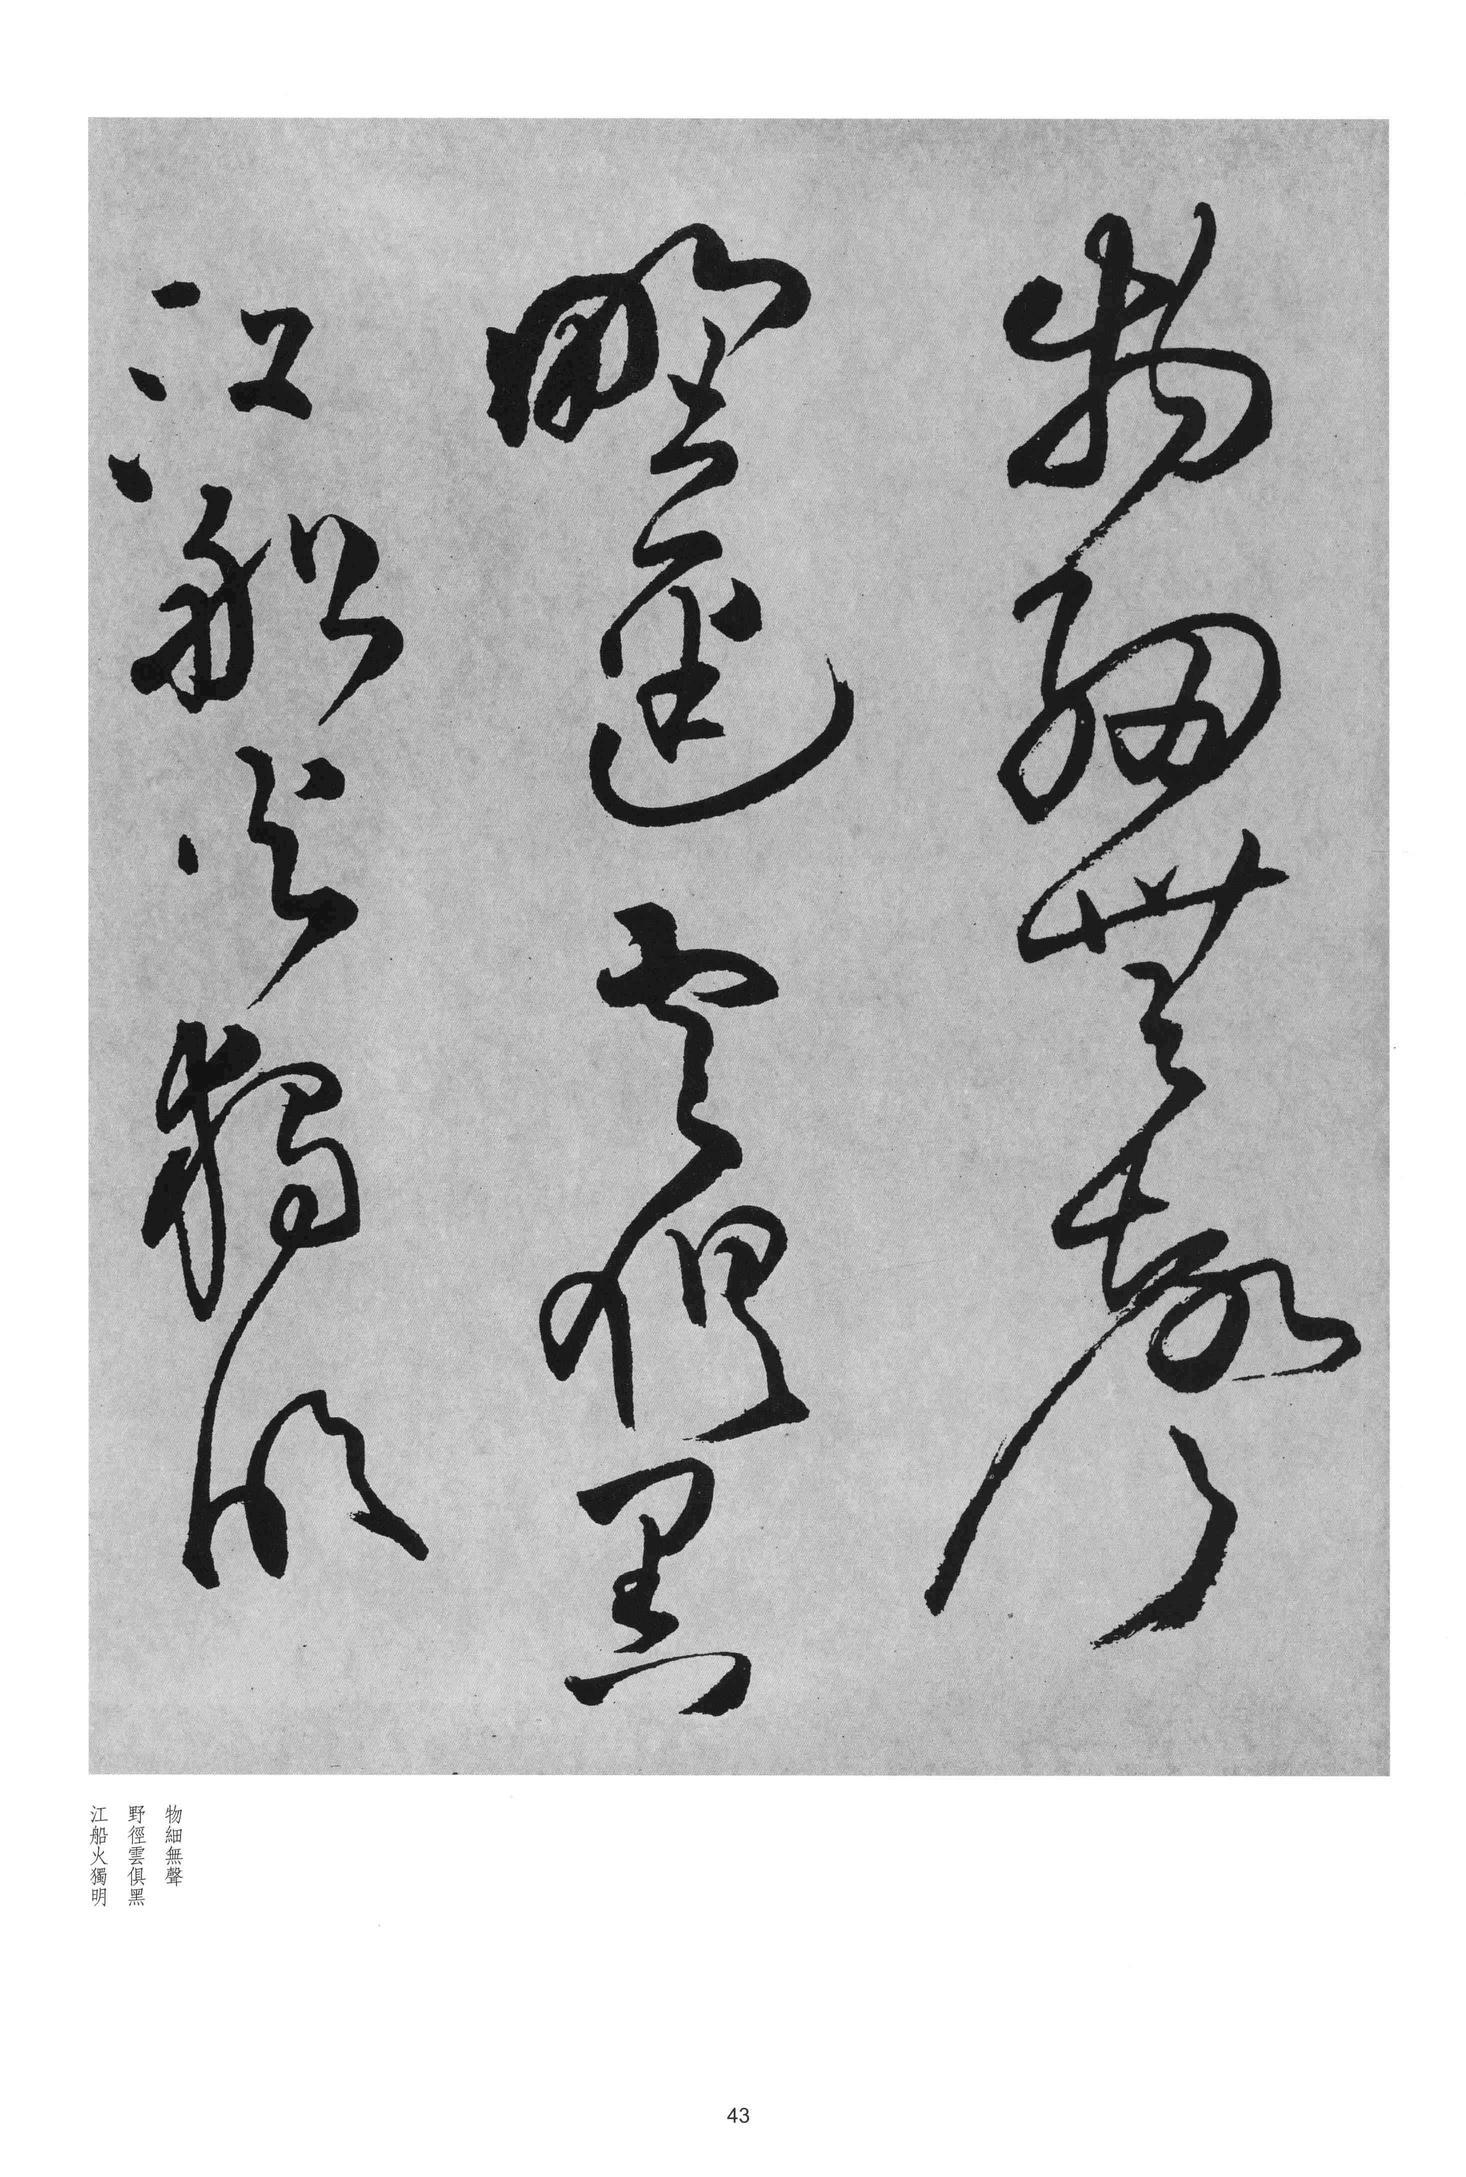 物細無聲
野徑雲俱黑
江船火獨明
物細無聲
野徑雲俱黑
江船火獨明
43